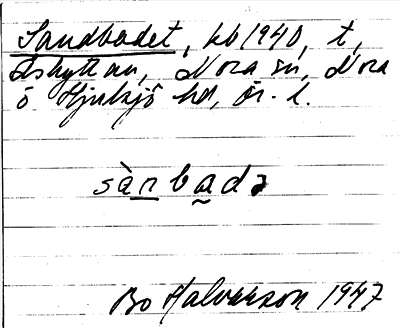 Sandbadet, kb 1940, t,
Eskyttan, Nora sn, Nora
o Hjulsjö hd, ör. l.
sànbadə
Bo Halvarson 1947